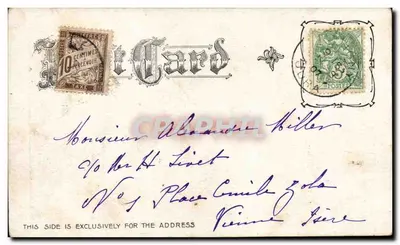 Post Card
10 CENTIMES
A PERCEVOIR
TAXE
Monsieur Alexandre Miller
c/o Mr H Livet
No 1 Place Emile Zola
Vienne Isère
THIS SIDE IS EXCLUSIVELY FOR THE ADDRESS